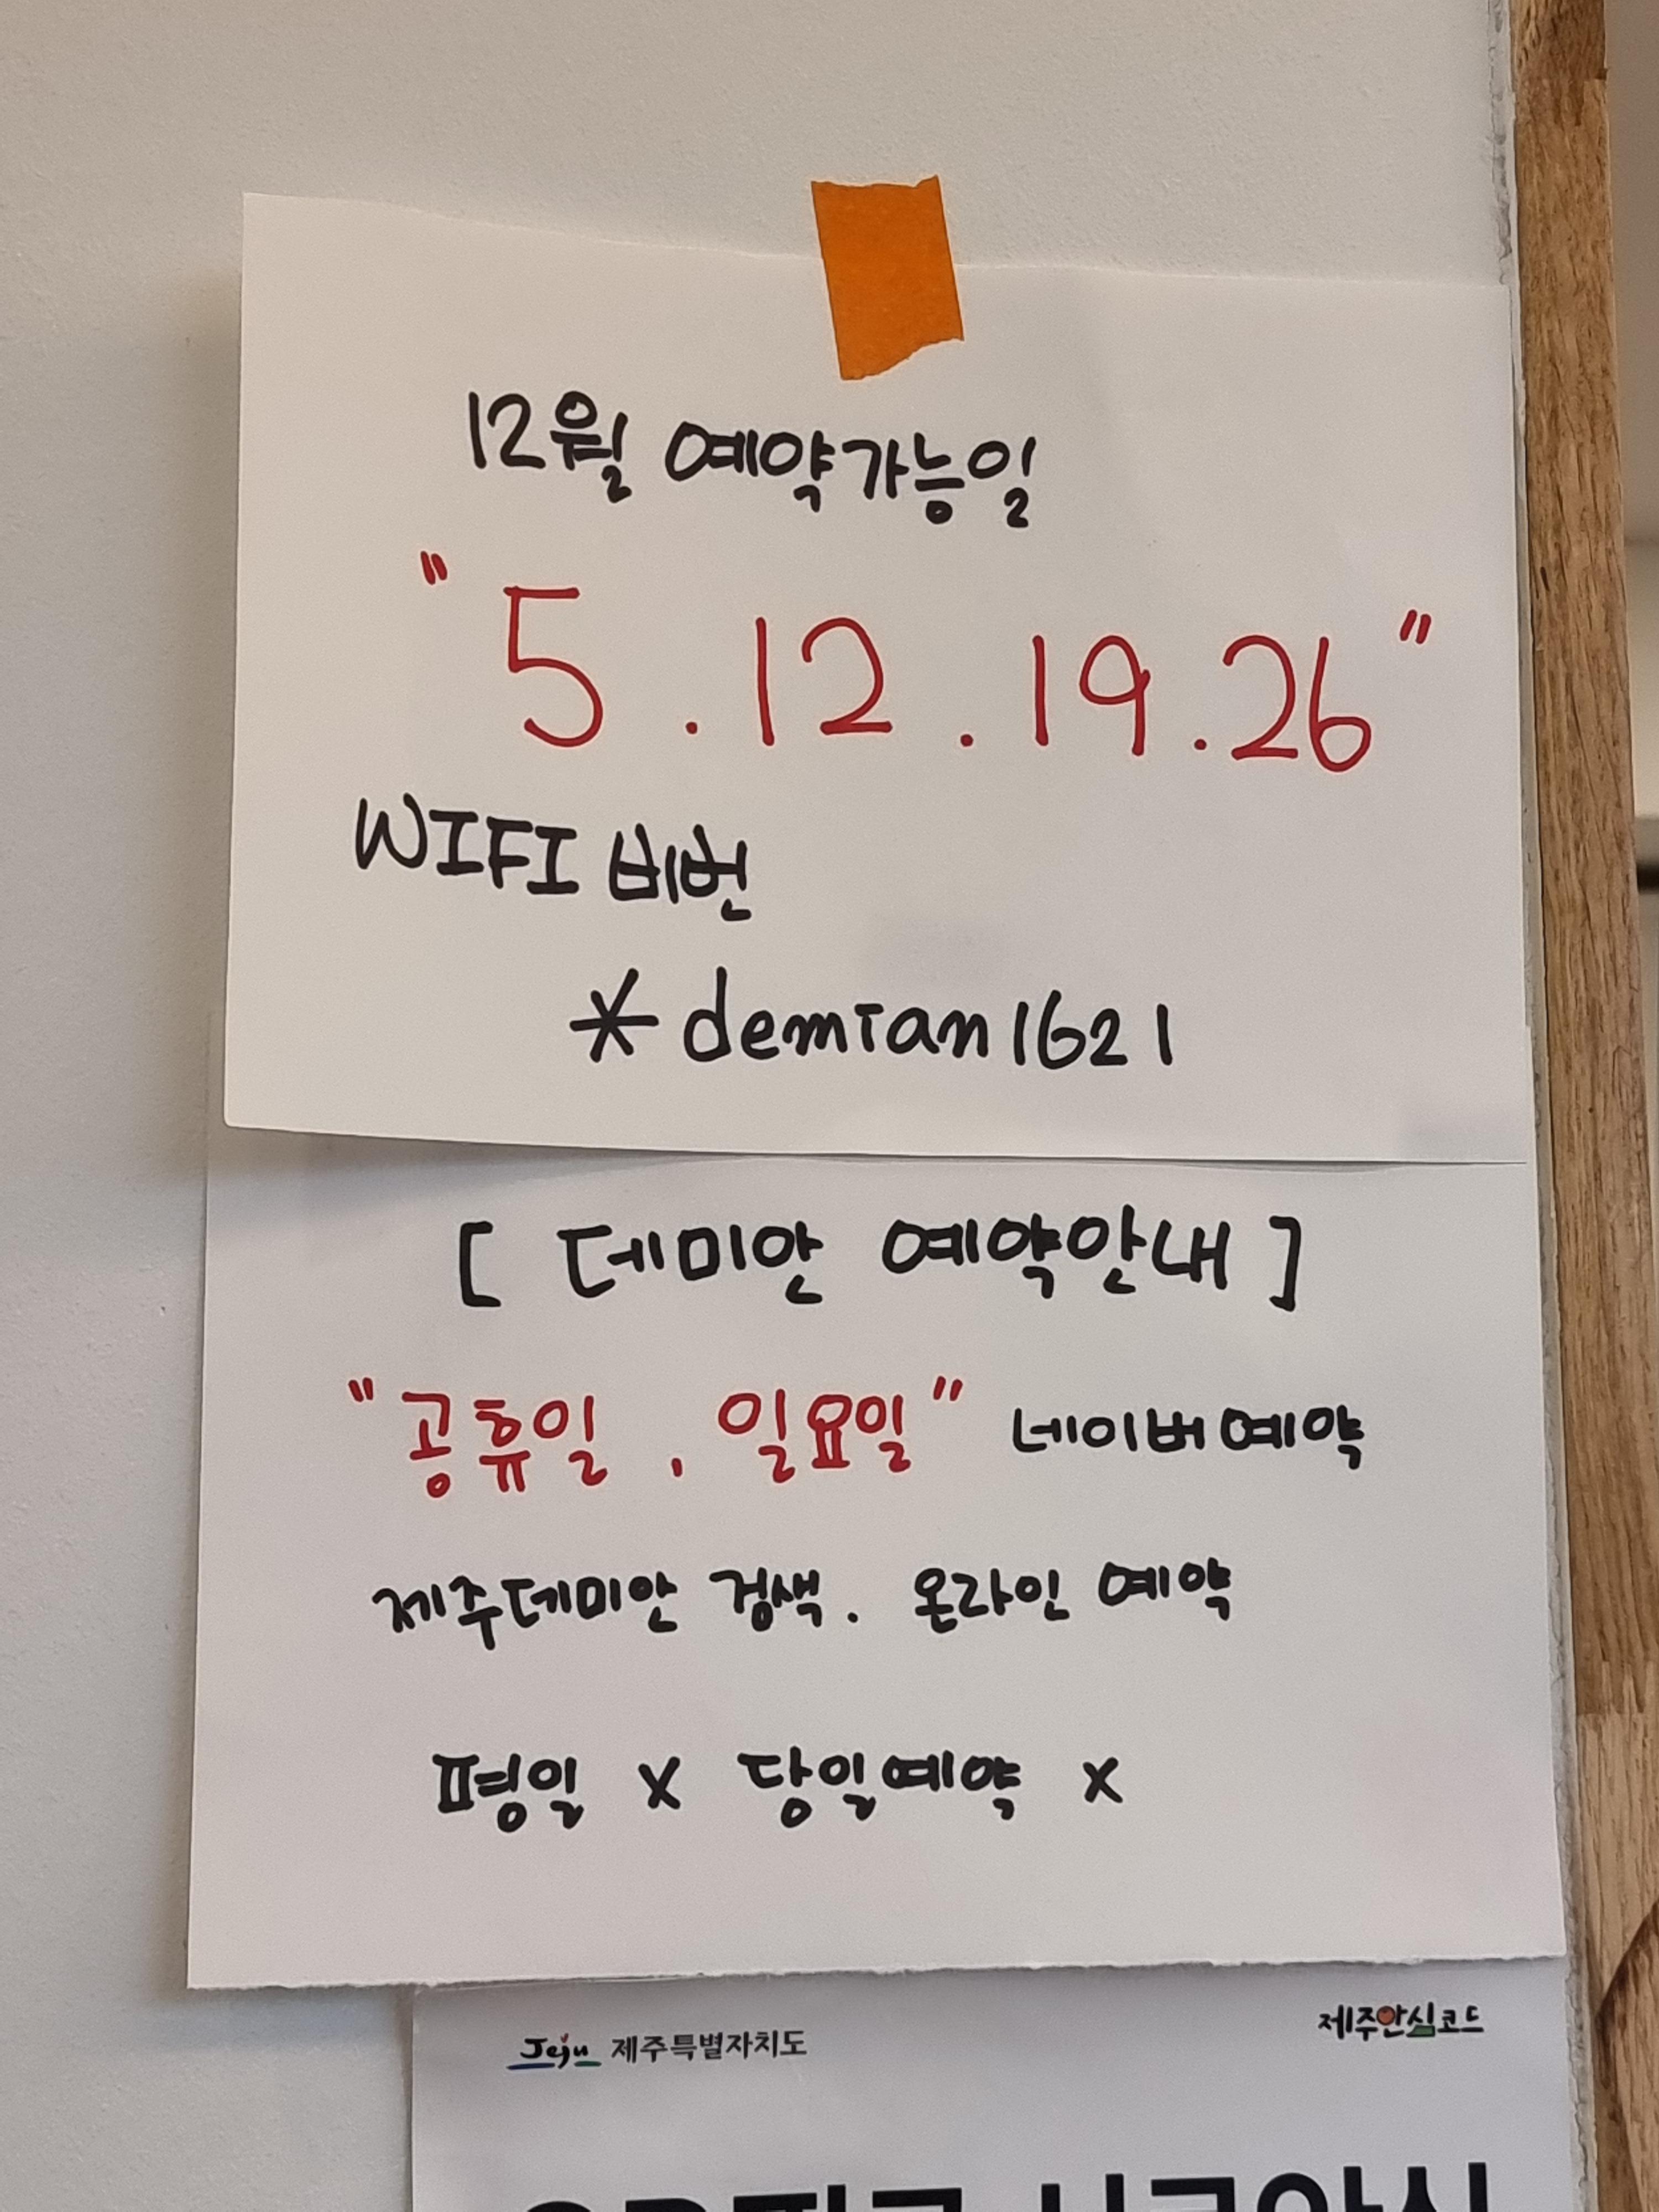 12월 예약가능일
" 5 . 12 . 19 . 26 "
WIFI 비번
* demian1621
[ 데미안 예약안내 ]
"공휴일 , 일요일" 네이버예약
제주데미안 검색. 온라인 예약
평일 x 당일예약 x
Jeju 제주특별자치도
제주안심코드